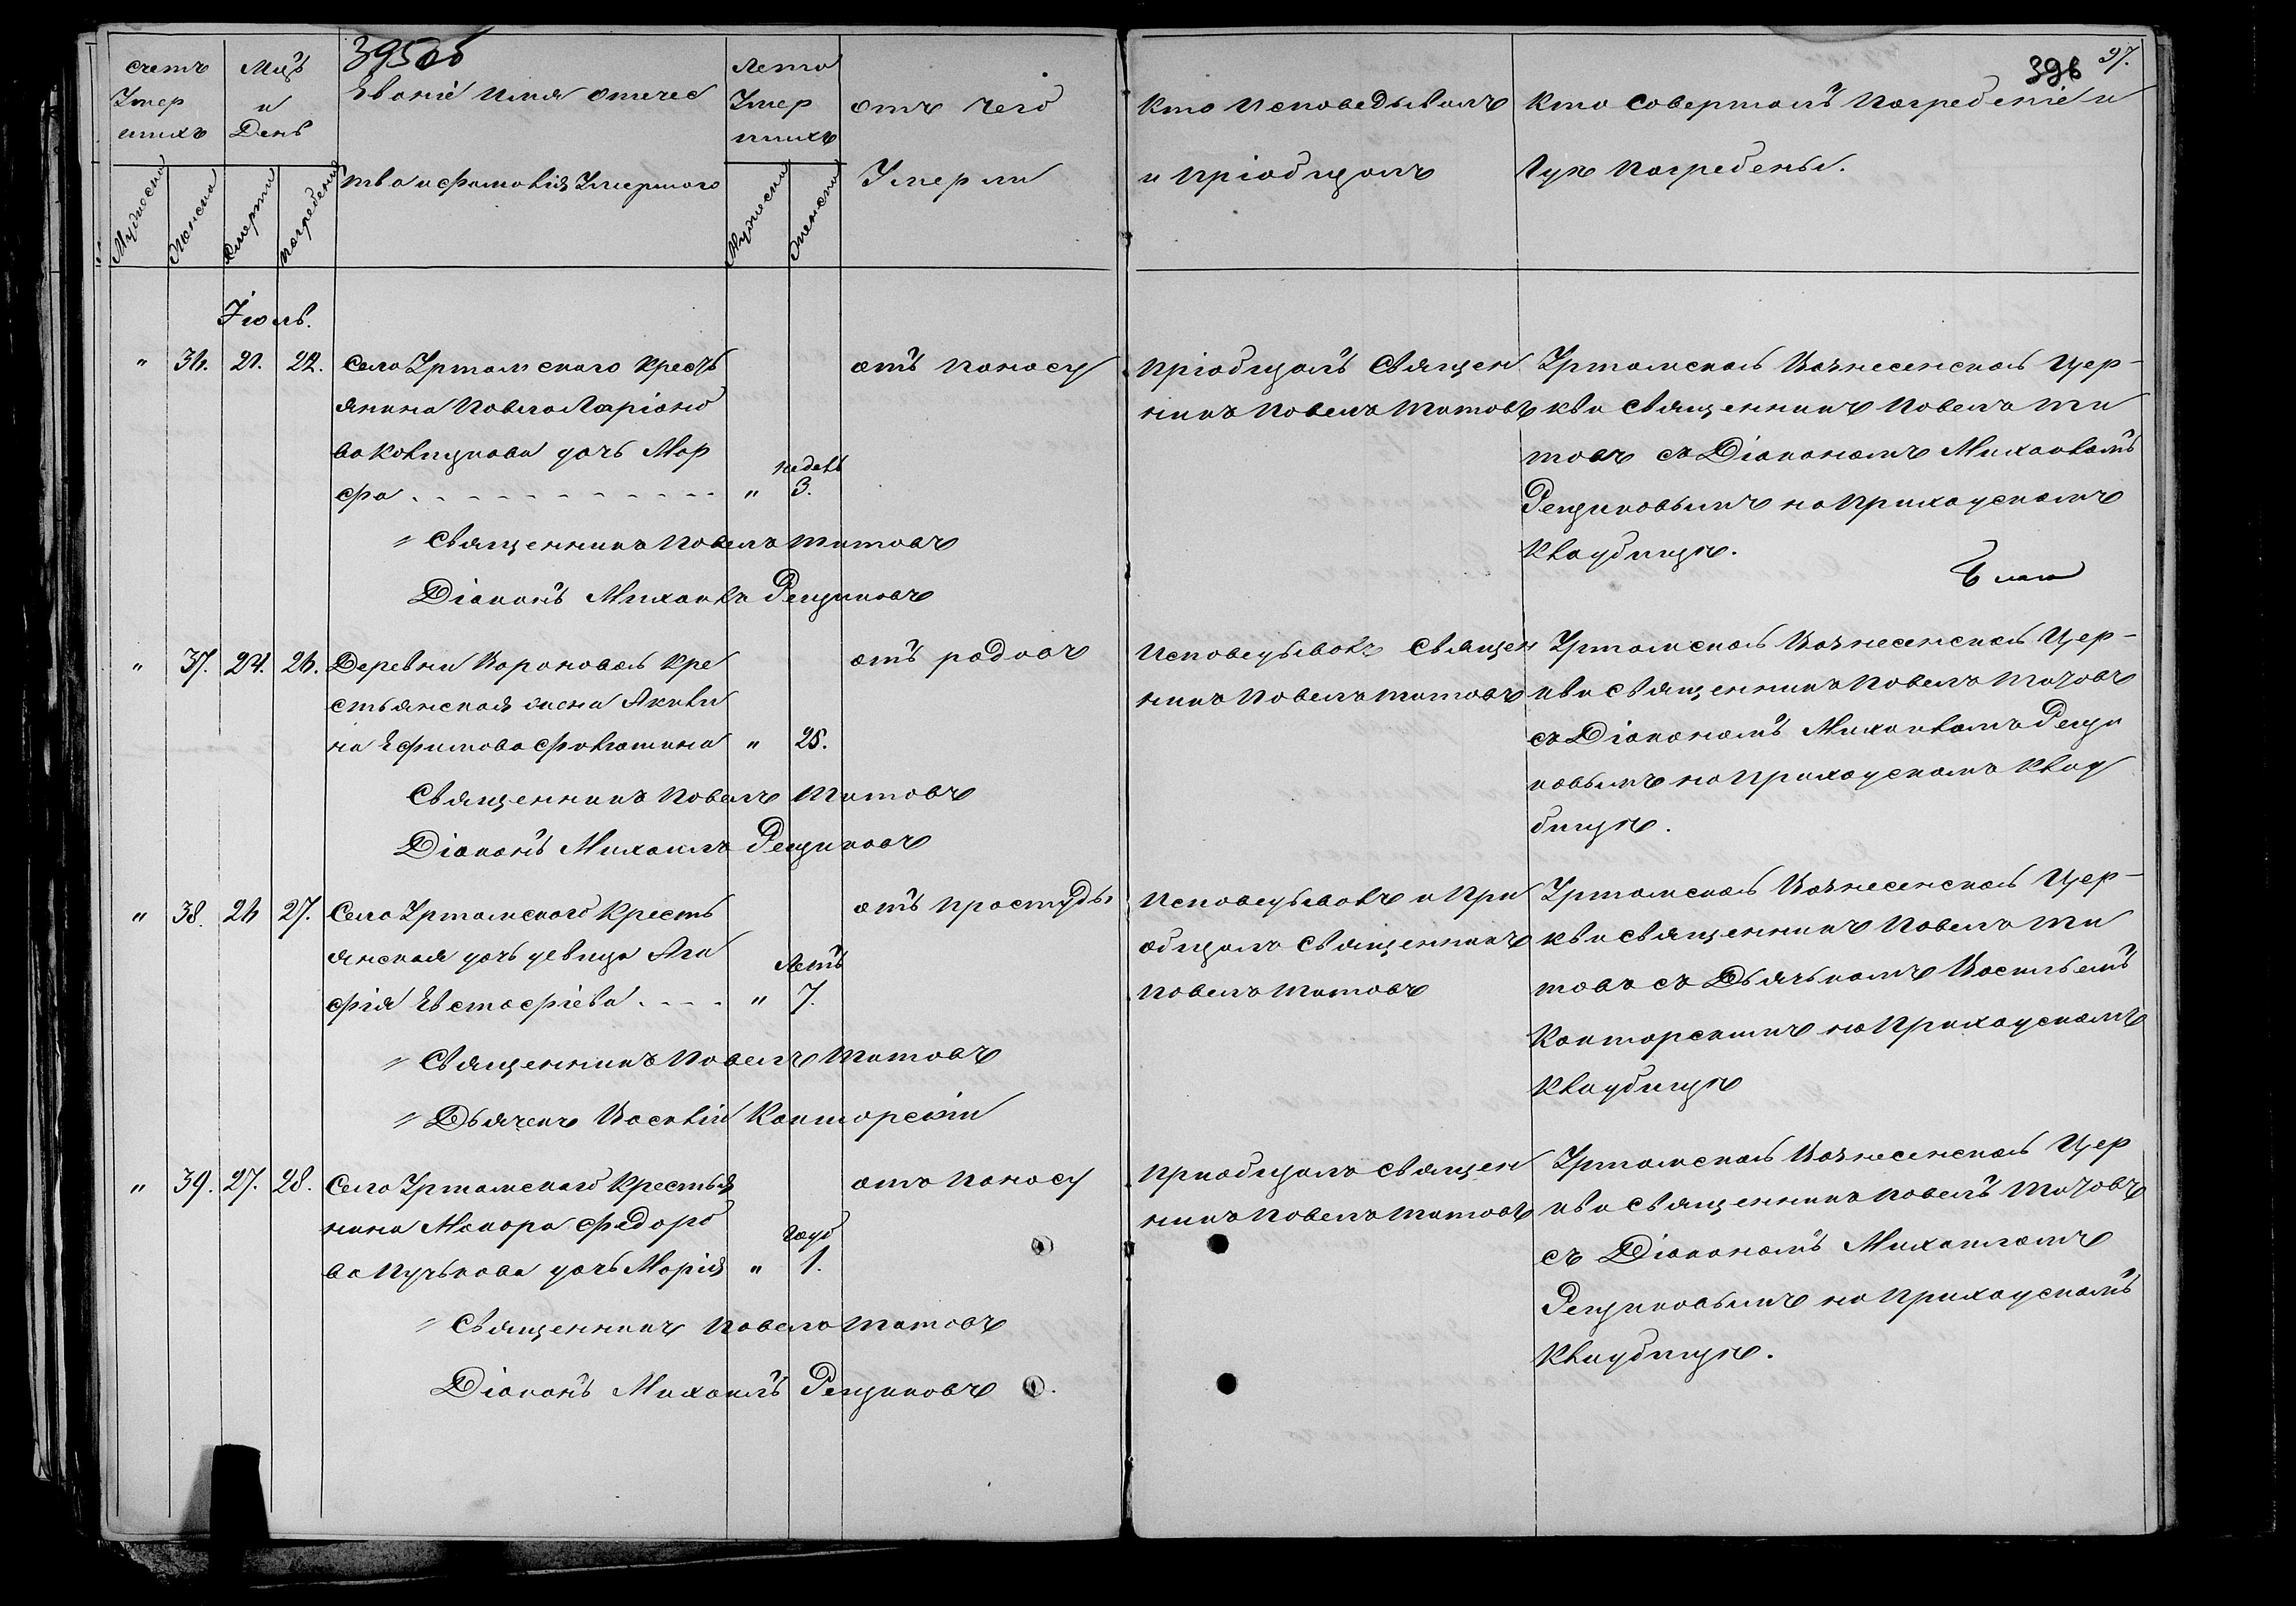 395об
396
97.
счетъ Умер шихъ
Мцъ и День
Званіе имя отечес
тва и фамилія Умершаго
Лета Умер шихъ
отъ чего
Умерли
Кто Исповедывалъ
и пріобщалъ
Кто Совершалъ погребеніе и
Гдѣ погребены.
Мужеска
Женска
Смерти
погребенія
Мужеска
Женска
Іюль.
" 36. 21. 22. Села Уртамскаго кресть
янина Павла Ларіоно
ва дочь Мар
фа - - - - - - - " недель 3.
отъ поносу
Пріобщалъ Священ
никъ Павелъ Титовъ
Уртамской Вознесенской Цер-
кви Священникъ Павелъ Ти
товъ съ Діакономъ Михаиломъ
Рещиковымъ на приходскомъ
Кладбищѣ.
" Священникъ Павелъ Титовъ
Діаконъ Михаилъ Рещиковъ
" 37. 24. 26. Деревни Вороновой кре
стьянская жена Акили
на Ефимова " 25.
отъ родовъ
Исповедывалъ Священ
никъ Павелъ Титовъ
Уртамской Вознесенской Цер-
кви Священникъ Павелъ Титовъ
съ Діакономъ Михаиломъ Рещи
ковымъ на приходскомъ Клад
бищѣ.
Священникъ Павелъ Титовъ
Діаконъ Михаилъ Рещиковъ
" 38. 26 27. Села Уртамскаго Кресть
янская дочь девица Ага
фія Евстафіева - - - " Летъ 7.
отъ простуды
Исповедывалъ и При
общалъ Священникъ
Павелъ Титовъ
Уртамской Вознесенской Цер-
кви Священникъ Павелъ Ти
товъ съ Дьячькомъ Васильемъ
на Приходскомъ
Кладбищѣ
" Священникъ Павелъ Титовъ
" Дьячекъ Василій
" 39. 27. 28. Села Уртамскаго Крестья
нина Макара Федоро
ва Пучькова дочь Марія " годъ 1.
отъ поносу
Приобщалъ Священ
никъ Павелъ Титовъ
Уртамской Вознесенской Цер
кви Священникъ Павелъ Титовъ
съ Діакономъ Михаиломъ
Рещиковымъ на приходскомъ
Кладбищѣ.
" Священникъ Павелъ Титовъ
Діаконъ Михаилъ Рещиковъ